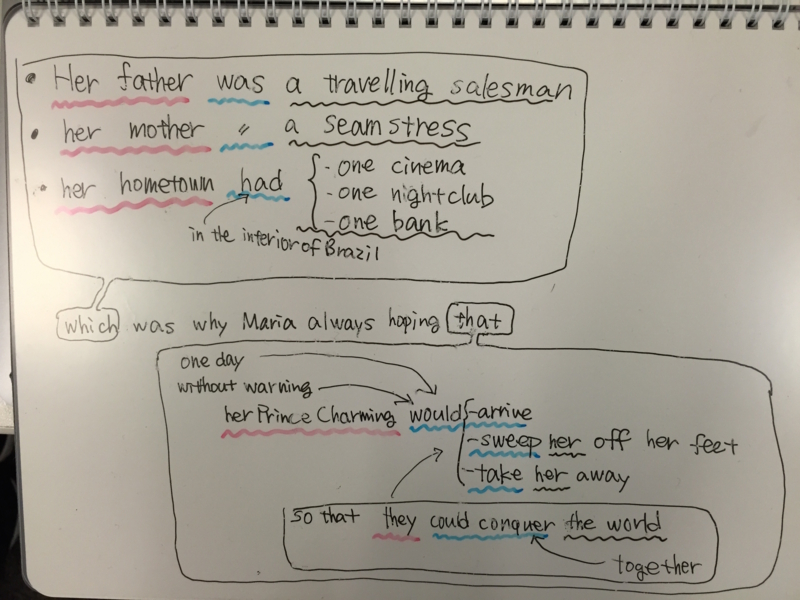 • Her father was a travelling salesman
• her mother 〃 a seamstress
• her hometown had - one cinema
- one nightclub
- one bank
in the interior of Brazil
which was why Maria always hoping that
one day
without warning
her Prince Charming would - arrive
- sweep her off her feet
- take her away
so that they could conquer the world
together